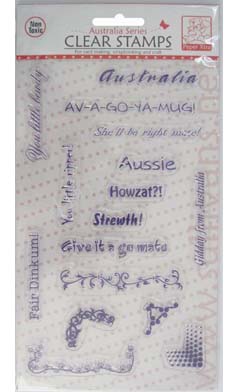 Non Toxic
Australia Series
CLEAR STAMPS
For card making, scrapbooking and craft
Paper Xtra
You little beauty
Australia
AV-A-GO-YA-MUG!
She'll be right mate!
You little ripper!
Aussie
Howzat?!
Strewth!
Give it a go mate
Gidday from Australia
Fair Dinkum!